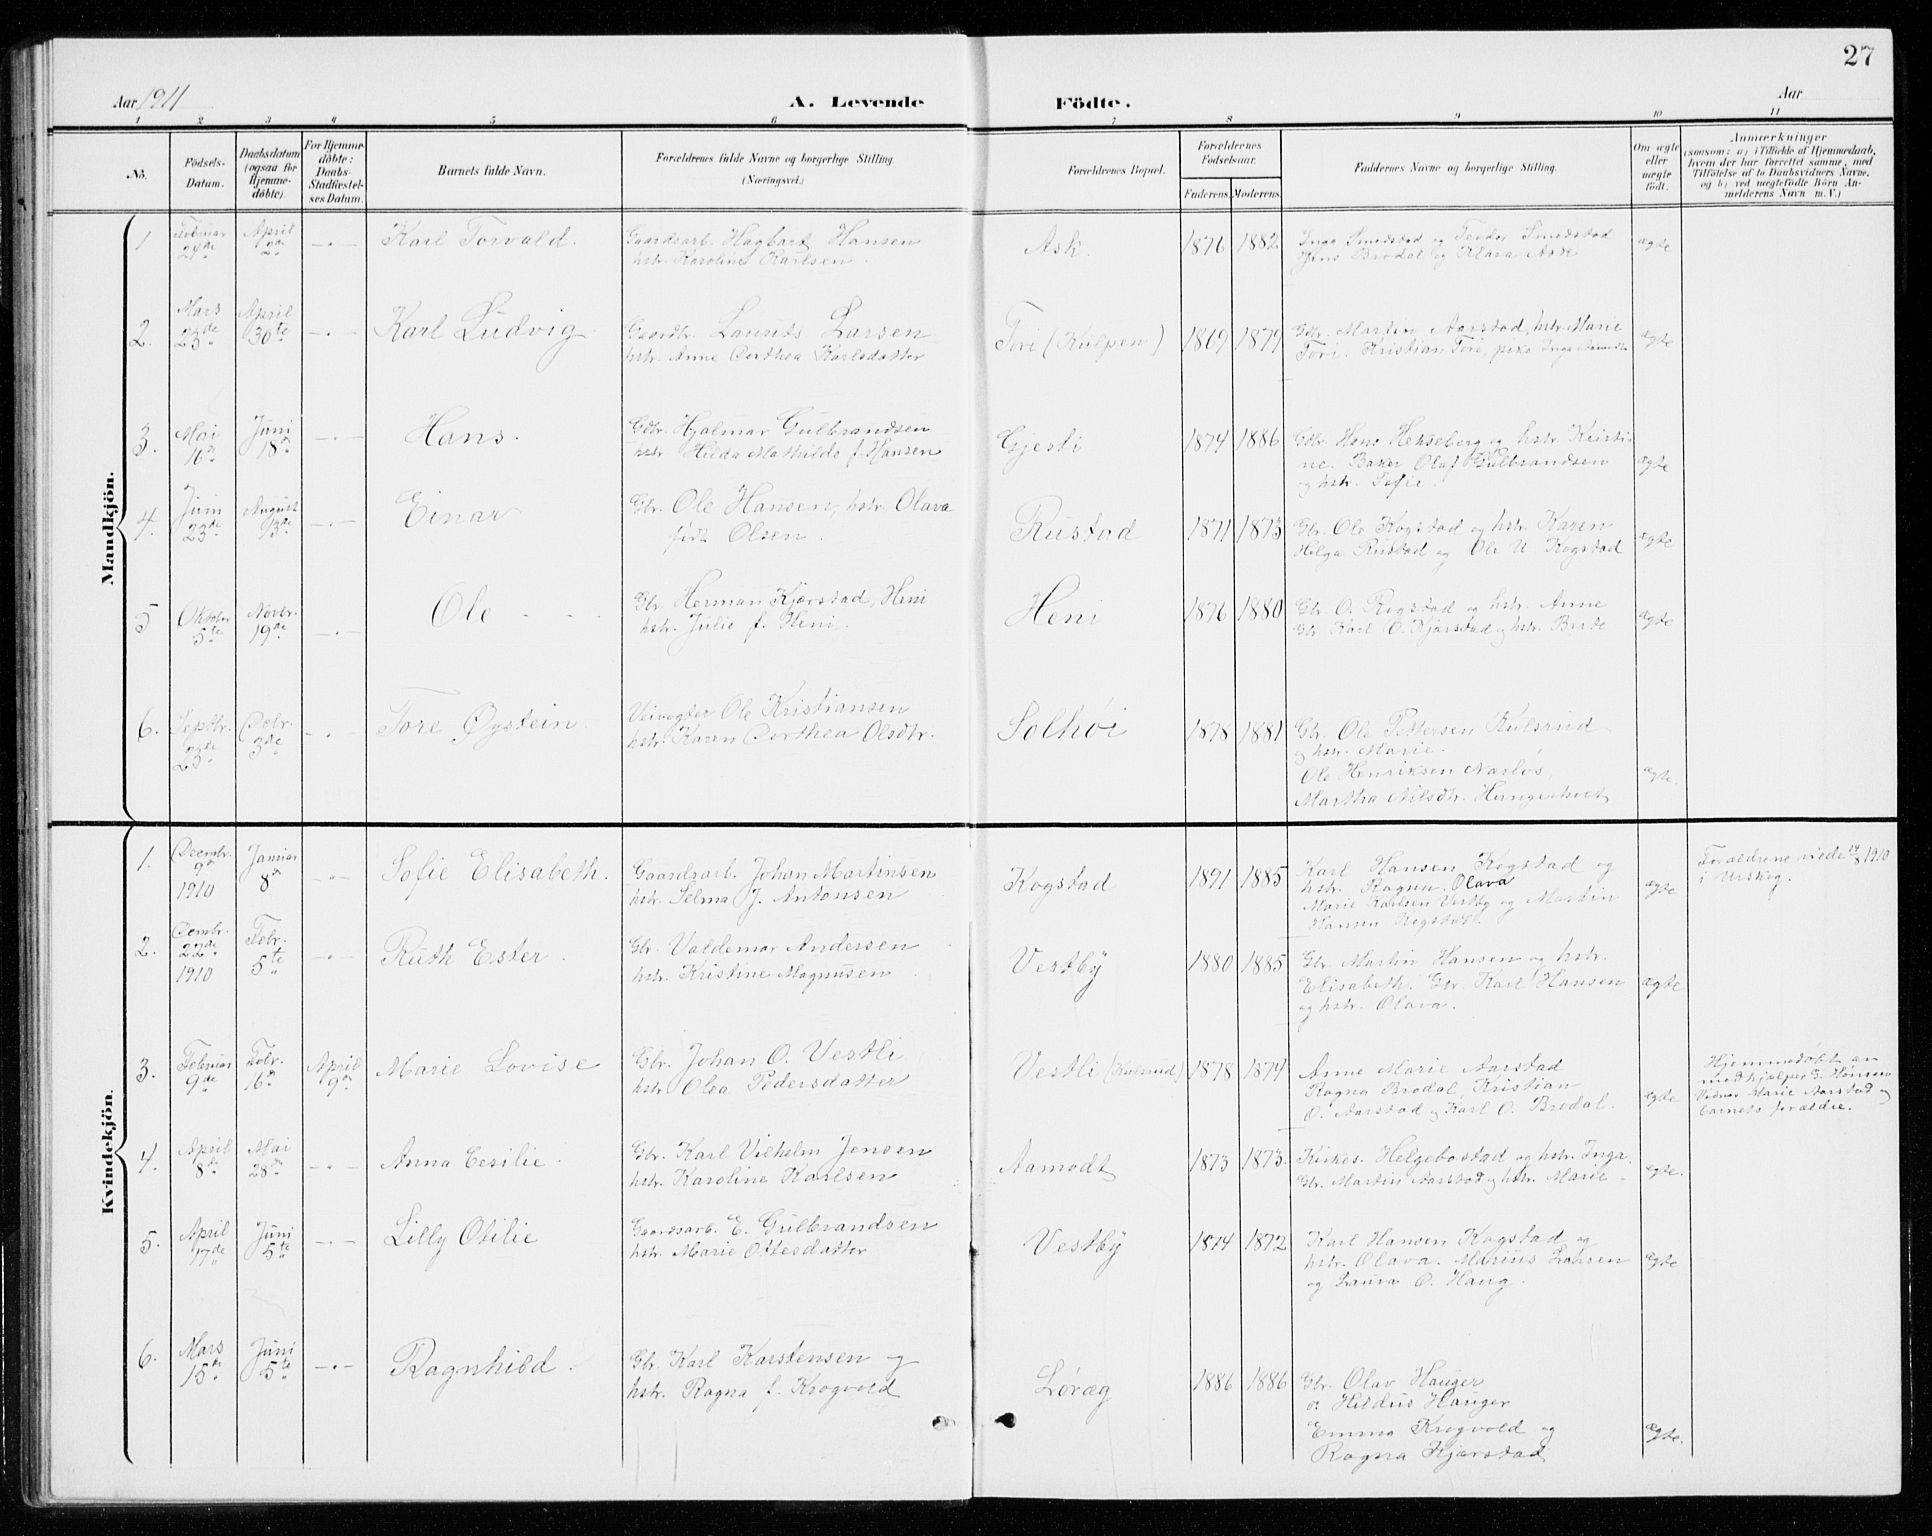 27
Aar 1911
A. Levende Födte.
Aar
1 2 3 4 5 6 7 8 9 10 11
No.
Födsels-Datum.
Daabsdatum (ogsaa for Hjemmedöbte).
For Hjemmedöbte: Daabs-Stadfæstelses Datum.
Barnets fulde Navn.
Forældrenes fulde Navne og borgerlige Stilling. (Næringsvei.)
Forældrenes Bopæl.
Forældrenes Födselsaar.
Faderens Moderens
Faddernes Navne og borgerlige Stilling.
Om ægte eller uægte födt.
Anmærkninger
(saasom: a) i Tilfælde af Hjemmedaab, hvem der har forrettet samme, med Tilföielse af to Daabsvidners Navne, og b) ved uægtefödte Börn Anmelderens Navn m. V.)
Mandkjön.
1 Februar 24de April 2den -"- Karl Torvald. Gaardsarb. Hagbart Hansen
hstr. Karoline Karlsen. Ask. 1876 1882 Inga Smedstad og Teodor Smedstad
Jens Brodal og Klara Ask ægte
2. Mars 23de April 30te -"- Karl Ludvig. Gaardbr. Laurits Larsen
hstr. Anne Dorthea Karlsdatter Tori (Kulpen) 1869 1879 Gbr. Martin Aarstad, hstr. Marie
Tori. Kristian Tori, pike Inga Aamodt ægte
3. Mai 16de Juni 18de -"- Hans. Gbr. Hjalmar Gulbrandsen
hstr. Hilda Mathilde f. Hansen Gjesti 1874 1886 Gbr. Hans Hekseberg og hstr. Kristi-
ne. Baker Olaf Gulbrandsen
og hstr. Sofie. ægte
4. Juni 23de August 13de -"- Einar Gbr. Ole Hansen, hstr. Olava
født Olsen. Rustad 1871 1873 Gbr. Ole Kogstad og hstr. Karen
Helga Rustad og Ole U. Kogstad ægte
5 Oktober 5te Novbr. 19de -"- Ole Gbr. Herman Kjærstad, Heni
hstr. Julie f. Heni. Heni 1876 1880 Gbr. O. Rogstad og hstr. Anne
Gbr. Karl O. Kjærstad og hstr. Berte ægte
6. Septbr. 23de Decbr. 3de -"- Tore Øystein. Veivogter Ole Kristiansen
hstr. Karen Dorthea Olsdtr. Solhøi 1878 1881 Gbr. Ole Pettersen Kulsrud
og hstr. Marie.
Ole Henriksen Narløs,
Martha Nilsdtr. Hungerholt ægte.
Kvindekjön.
1. Decembr. 9de 1910 Januar 8de -"- Sofie Elisabeth. Gaardsarb. Johan Martinsen
hstr. Selma J. Antonsen Kogstad 1891 1885 Karl Hansen Kogstad og
hstr. Ragna. Olava
Marie Karlsen Vestby og Martin
Hansen Kogstad. ægte Forældrene viede 14/8 1910
i Urskog.
2. Decembr. 22de 1910 Febr. 5te -"- Ruth Ester. Gbr. Valdemar Andersen
hstr. Kristine Magnusen Vestby 1880 1885 Gbr. Martin Hansen og hstr.
Elisabeth. Gbr. Karl Hansen
og hstr. Olava. ægte
3. Februar 9de Febr. 16de April 9de Marie Lovise Gbr. Johan O. Vestli
hstr. Olea Pedersdatter Vestli (Kulsrud) 1878 1874 Anne Marie Aarstad
Ragna Brodal, Kristian
O. Aarstad og Karl O. Brodal. ægte Hjemmedøbt av
medhjælper S. Hansen
Vidner Marie Aarstad og
barnets forældre.
4. April 8de Mai 28de -"- Anna Cesilie. Gbr. Karl Vilhelm Jensen
hstr. Karoline Karlsen Aamodt 1873 1873. Kirkes. Helgebostad og hstr. Inga.
Gbr. Martin Aarstad og hstr. Marie ægte.
5. April 17de Juni 5te -"- Lilly Otilie Gaardsarb. E. Gulbrandsen
hstr. Marie Ottesdatter Vestby 1874 1872 Karl Hansen Kogstad og
hstr. Olava. Marius Larsen
og Laura O. Haug. ægte
6. Mars 15de Juni 5te -"- Ragnhild. Gbr. Karl Karstensen og
hstr. Ragna f. Krogvold Løræg 1886 1886 Gbr. Olav Hauger
Hildus Hauger
Emma Krogvold og
Ragna Kjærstad ægte.